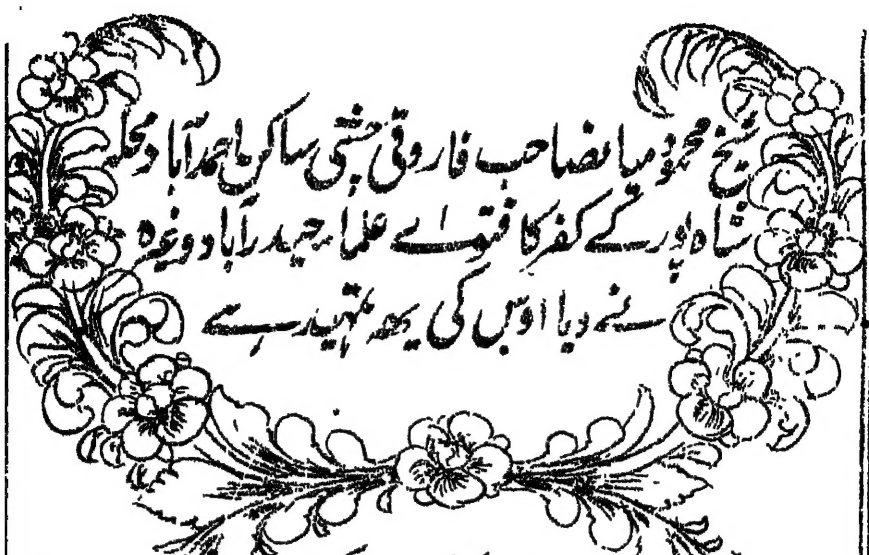 شیخ محمود میانصاحب فاروقی چشتی ساکن احمدآباد محلہ
شاہ پور کے کفر کا فتوے علماء حیدرآباد وغیرہ
نے دیا اوس کی یہہ تمہید ہے